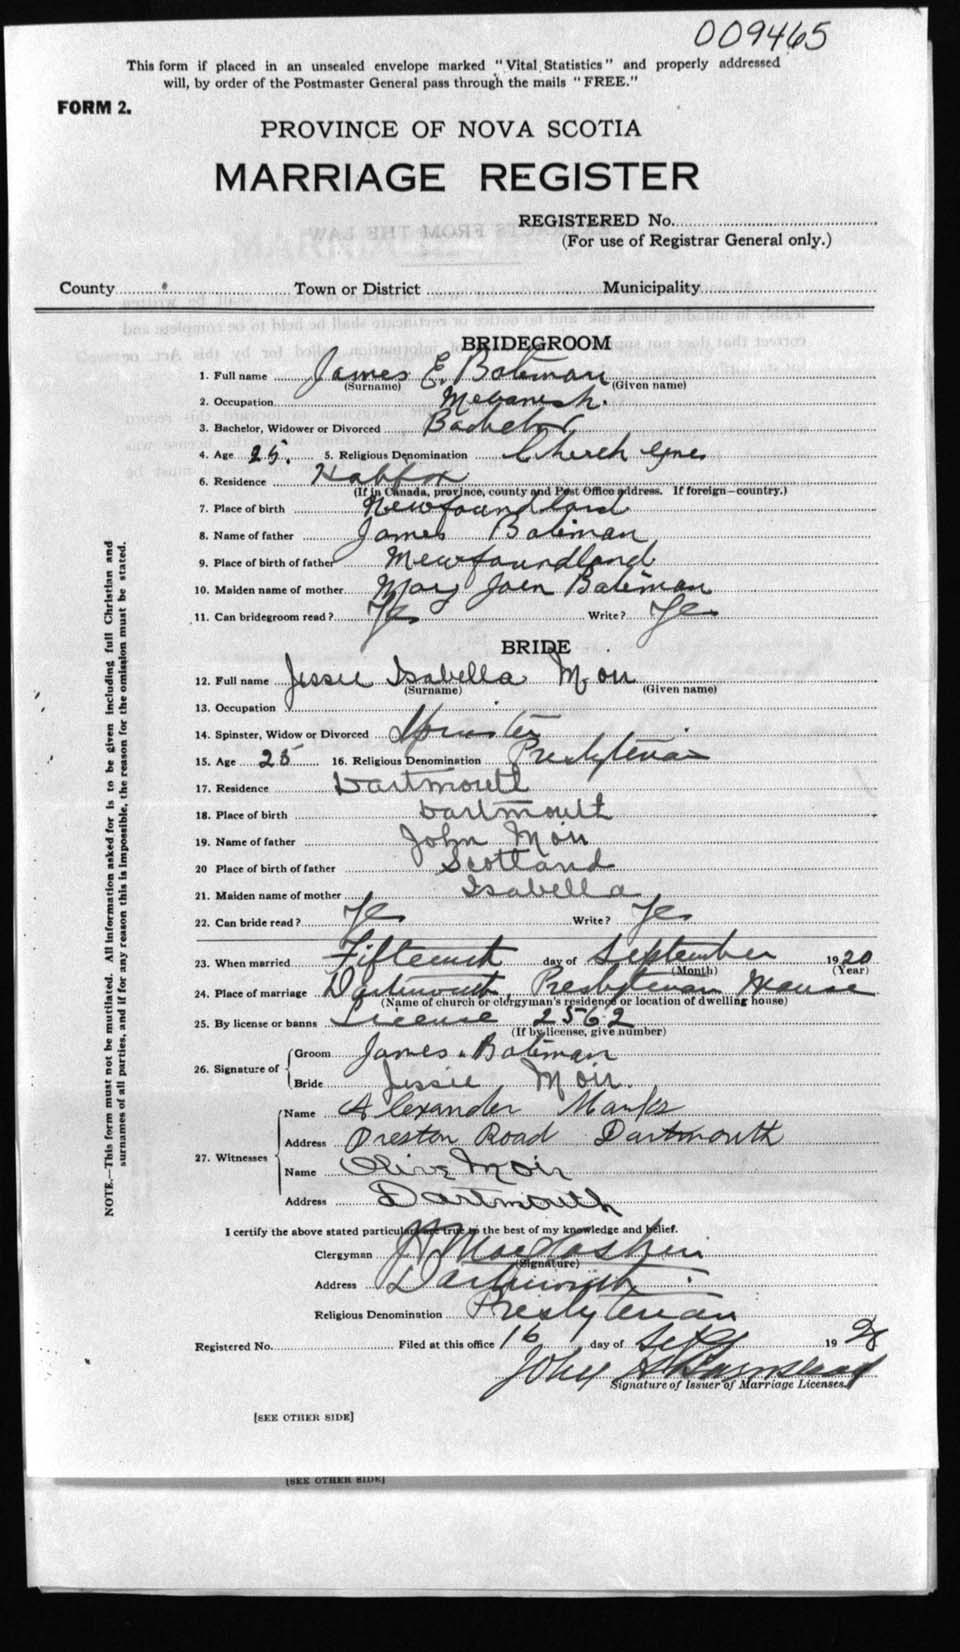 009465
This form if placed in an unsealed envelope marked "Vital Statistics" and properly addressed
will, by order of the Postmaster General pass through the mails "FREE."
FORM 2.
PROVINCE OF NOVA SCOTIA
MARRIAGE REGISTER
REGISTERED No.
(For use of Registrar General only.)
County Town or District Municipality
BRIDEGROOM
1. Full name James E. Bateman
(Surname) (Given name)
2. Occupation Mecanick.
3. Bachelor, Widower or Divorced Bachelor
4. Age 25. 5. Religious Denomination Church
6. Residence Halifax
(If in Canada, province, county and Post Office address. If foreign—country.)
7. Place of birth Newfoundland
8. Name of father James Bateman
9. Place of birth of father Newfoundland
10. Maiden name of mother Mary Jaen Bateman
11. Can bridegroom read? Yes Write? Yes
BRIDE
12. Full name Jessie Isabella Moir
(Surname) (Given name)
13. Occupation
14. Spinster, Widow or Divorced Spinster
15. Age 25 16. Religious Denomination Presbyterian
17. Residence Dartmouth
18. Place of birth Dartmouth
19. Name of father John Moir
20 Place of birth of father Scotland
21. Maiden name of mother Isabella
22. Can bride read? Yes Write? Yes
23. When married Fifteenth day of September 1920
(Month) (Year)
24. Place of marriage Dartmouth, Presbyterian Manse
(Name of church or clergyman's residence or location of dwelling house)
25. By license or banns License 2562
(If by license, give number)
26. Signature of
Groom James Bateman
Bride Jessie Moir.
27. Witnesses
Name Alexander Marks
Address Preston Road Dartmouth
Name Olive Moir
Address Dartmouth
I certify the above stated particulars are true to the best of my knowledge and belief.
Clergyman
(Signature)
Address Dartmouth
Religious Denomination Presbyterian
Registered No. Filed at this office 16 day of Sept 19 20
John
Signature of Issuer of Marriage Licenses.
[SEE OTHER SIDE]
[SEE OTHER SIDE]
NOTE.—This form must not be mutilated. All information asked for is to be given including full Christian and
surnames of all parties, and if for any reason this is impossible, the reason for the omission must be stated.